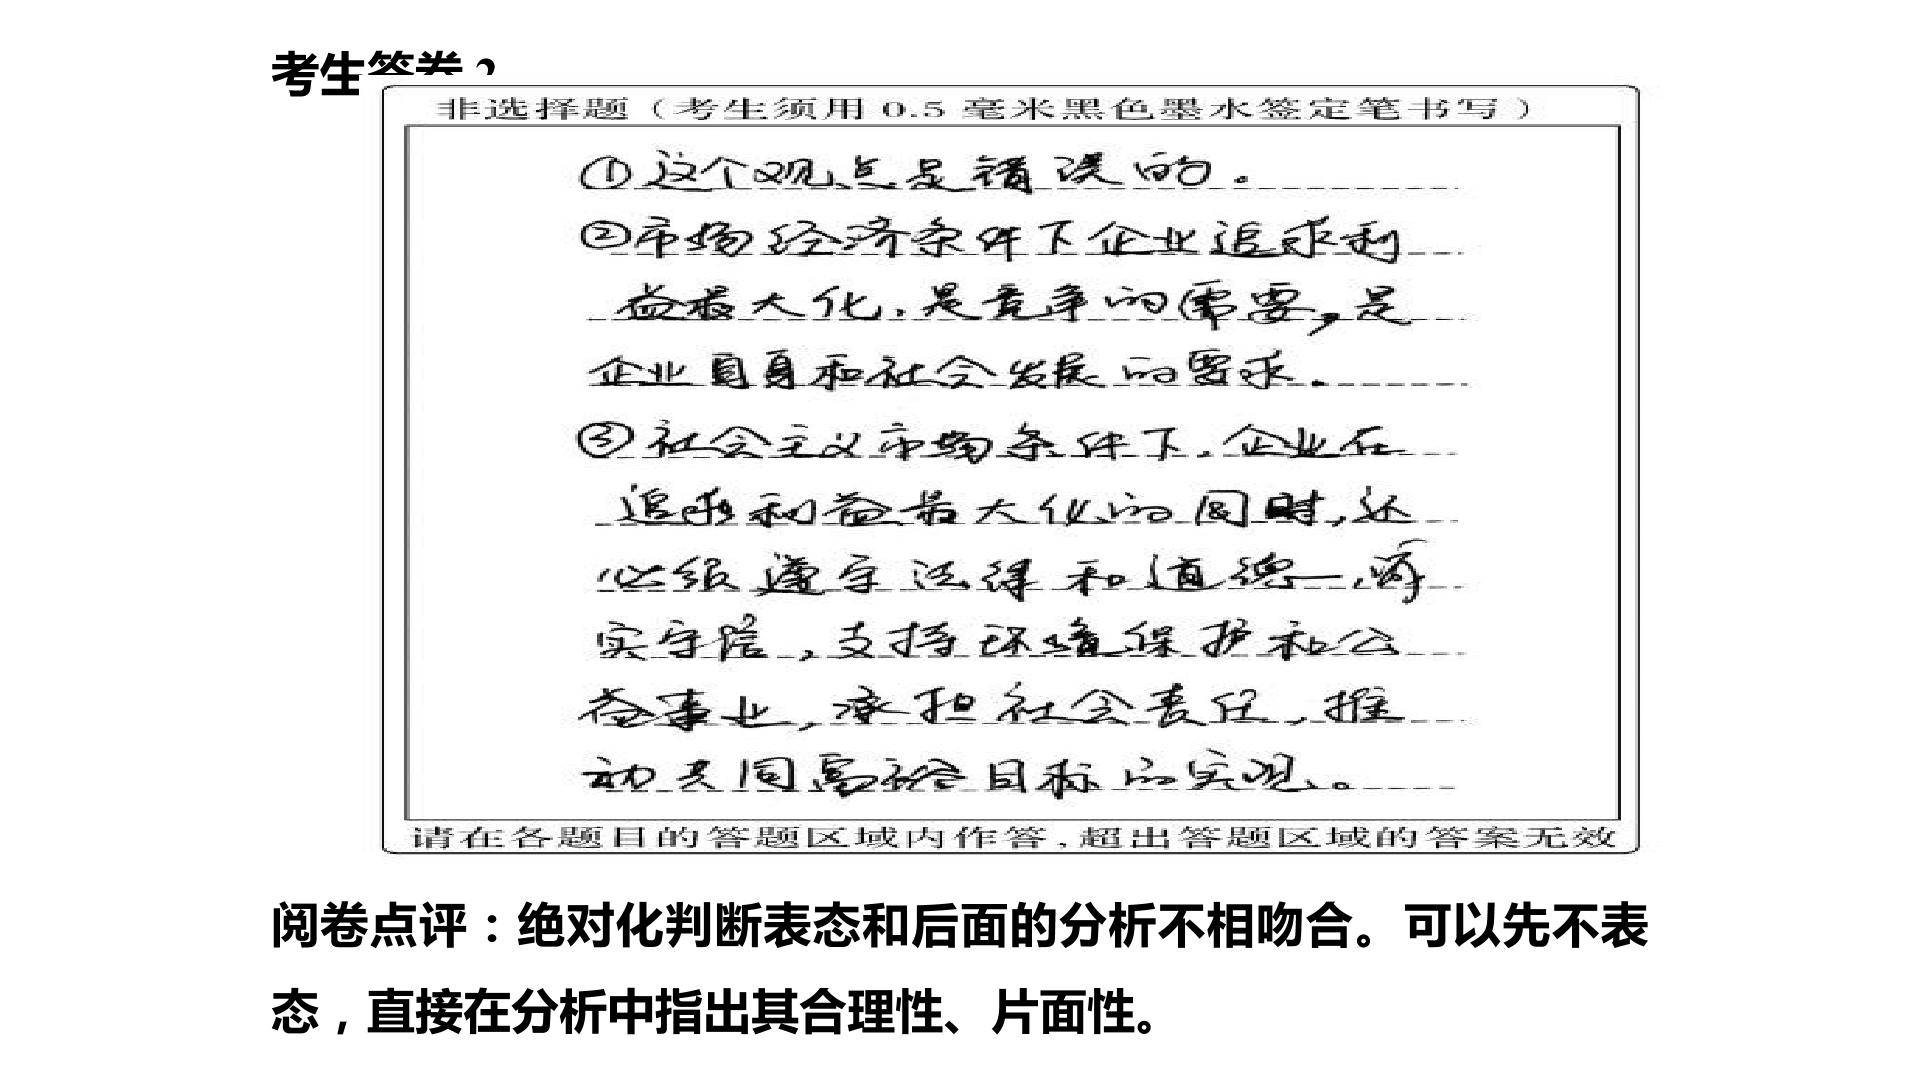 考生答卷2
非选择题（考生须用0.5毫米黑色墨水签定笔书写）
①这个观点是错误的。
②市场经济条件下企业追求利
益最大化，是竞争的需要，是
企业自身和社会发展的要求。
③社会主义市场条件下，企业在
追求利益最大化的同时，还
必须遵守法律和道德，诚
实守信，支持环境保护和公
益事业，承担社会责任，推
动共同富裕目标的实现。
请在各题目的答题区域内作答，超出答题区域的答案无效
阅卷点评：绝对化判断表态和后面的分析不相吻合。可以先不表
态，直接在分析中指出其合理性、片面性。